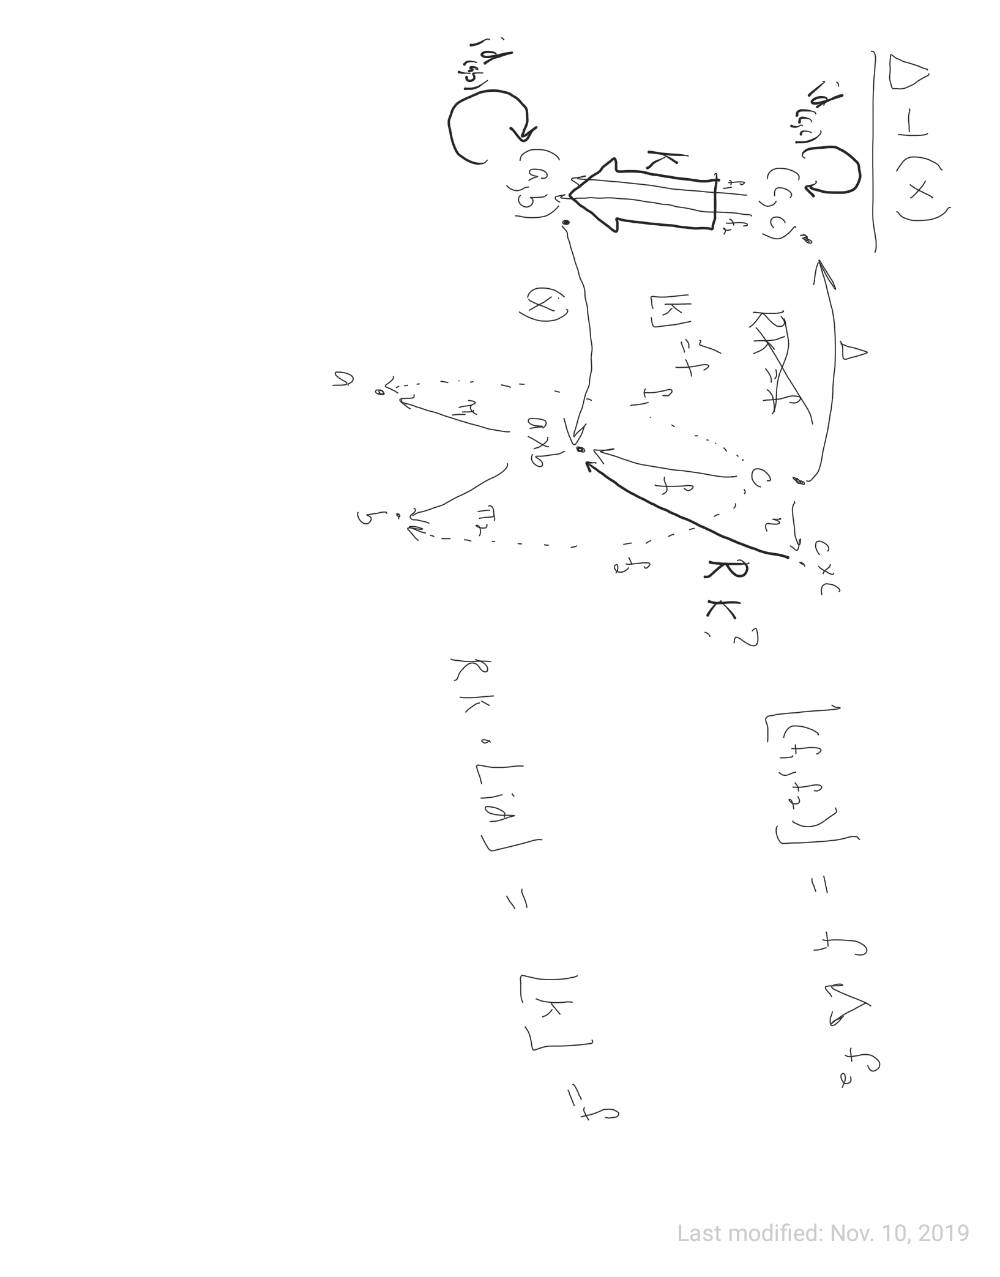 Δ ⊣ (×)
id(c,c)
Δ
c×c
(c,c)
RK = f
c
η
RK?
f₁ f₂
K
⌊k⌋ = f
✓
f₁
f
f₂
(a,b)
(×)
a×b
id(a,b)
π₁
π₂
a
b
⌊(f₁,f₂)⌋ = f₁ △ f₂
RK ∘ ⌊id⌋ = ⌊k⌋ = f
Last modified: Nov. 10, 2019